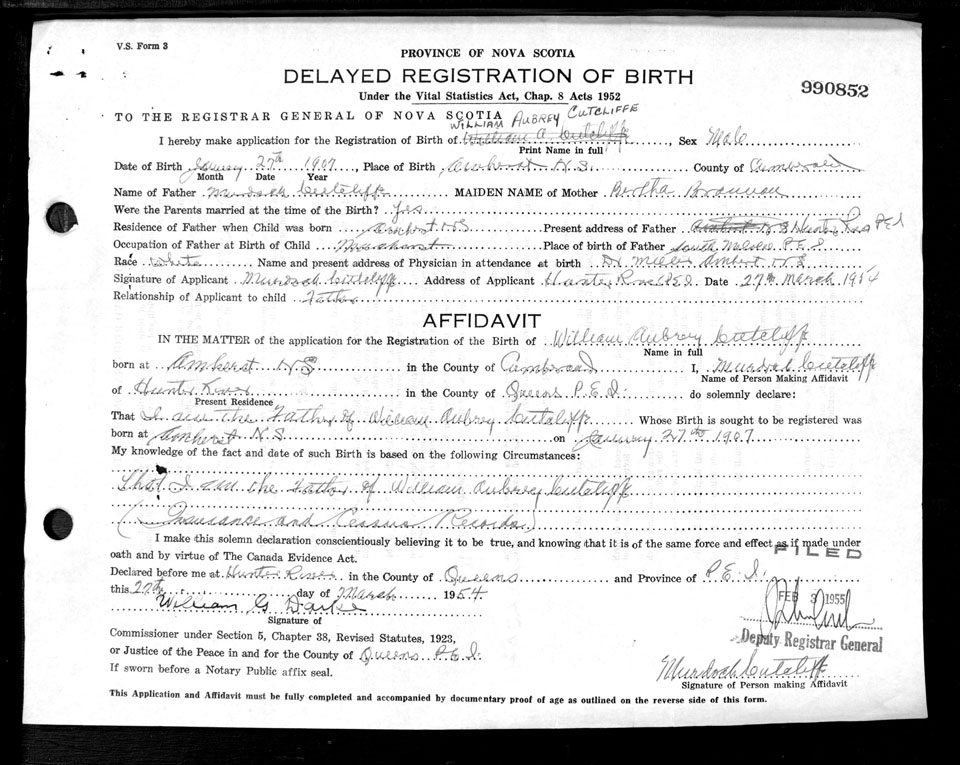 V.S. Form 3
PROVINCE OF NOVA SCOTIA
DELAYED REGISTRATION OF BIRTH
990852
Under the Vital Statistics Act, Chap. 8 Acts 1952
TO THE REGISTRAR GENERAL OF NOVA SCOTIA
WILLIAM AUBREY CUTCLIFFE
I hereby make application for the Registration of Birth of William A Cutcliffe, Sex Male
Print Name in full
Date of Birth January 27th 1907, Place of Birth Amherst N.S. County of
Month Date Year
Name of Father Murdoch Cutcliffe MAIDEN NAME of Mother Bertha
Were the Parents married at the time of the Birth? Yes
Residence of Father when Child was born Amherst N.S. Present address of Father Hunter River P.E.I
Occupation of Father at Birth of Child Place of birth of Father South P.E.I.
Race White Name and present address of Physician in attendance at birth Dr. Amherst N.S.
Signature of Applicant Murdoch Cutcliffe Address of Applicant Hunter River P.E.I. Date 27th March 1954
Relationship of Applicant to child Father
AFFIDAVIT
IN THE MATTER of the application for the Registration of the Birth of William Aubrey Cutcliffe
Name in full
born at Amherst N.S in the County of I, Murdoch Cutcliffe
Name of Person Making Affidavit
of Hunter River in the County of Queens P.E.I. do solemnly declare:
Present Residence
That I am the Father of William Aubrey Cutcliffe Whose Birth is sought to be registered was
born at Amherst N.S. on January 27th 1907
My knowledge of the fact and date of such Birth is based on the following Circumstances:
That I am the Father of William Aubrey Cutcliffe
(Insurance and Census Records)
I make this solemn declaration conscientiously believing it to be true, and knowing that it is of the same force and effect as if made under
oath and by virtue of The Canada Evidence Act.
FILED
Declared before me at Hunter River in the County of Queens and Province of P.E.I.
this 27th day of March 1954
FEB 3 1955
William G
Signature of
Deputy Registrar General
Commissioner under Section 5, Chapter 38, Revised Statutes, 1923,
or Justice of the Peace in and for the County of Queens P.E.I.
Murdoch Cutcliffe
If sworn before a Notary Public affix seal.
Signature of Person making Affidavit
This Application and Affidavit must be fully completed and accompanied by documentary proof of age as outlined on the reverse side of this form.